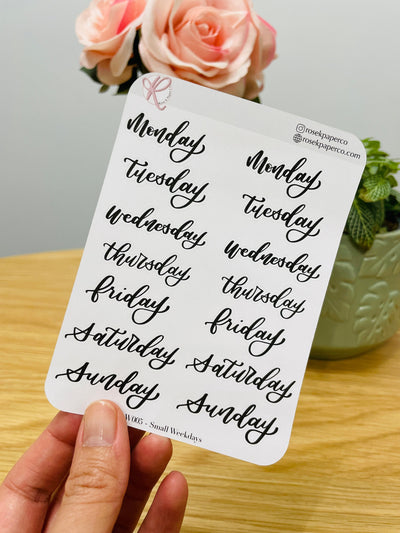 R
rosekpaperco
rosekpaperco.com
Monday
Monday
tuesday
tuesday
wednesday
wednesday
thursday
thursday
friday
friday
saturday
saturday
sunday
sunday
W005 - Small Weekdays